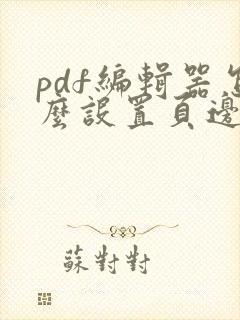 pdf編輯器怎
麼設置頁邊
蘇對對